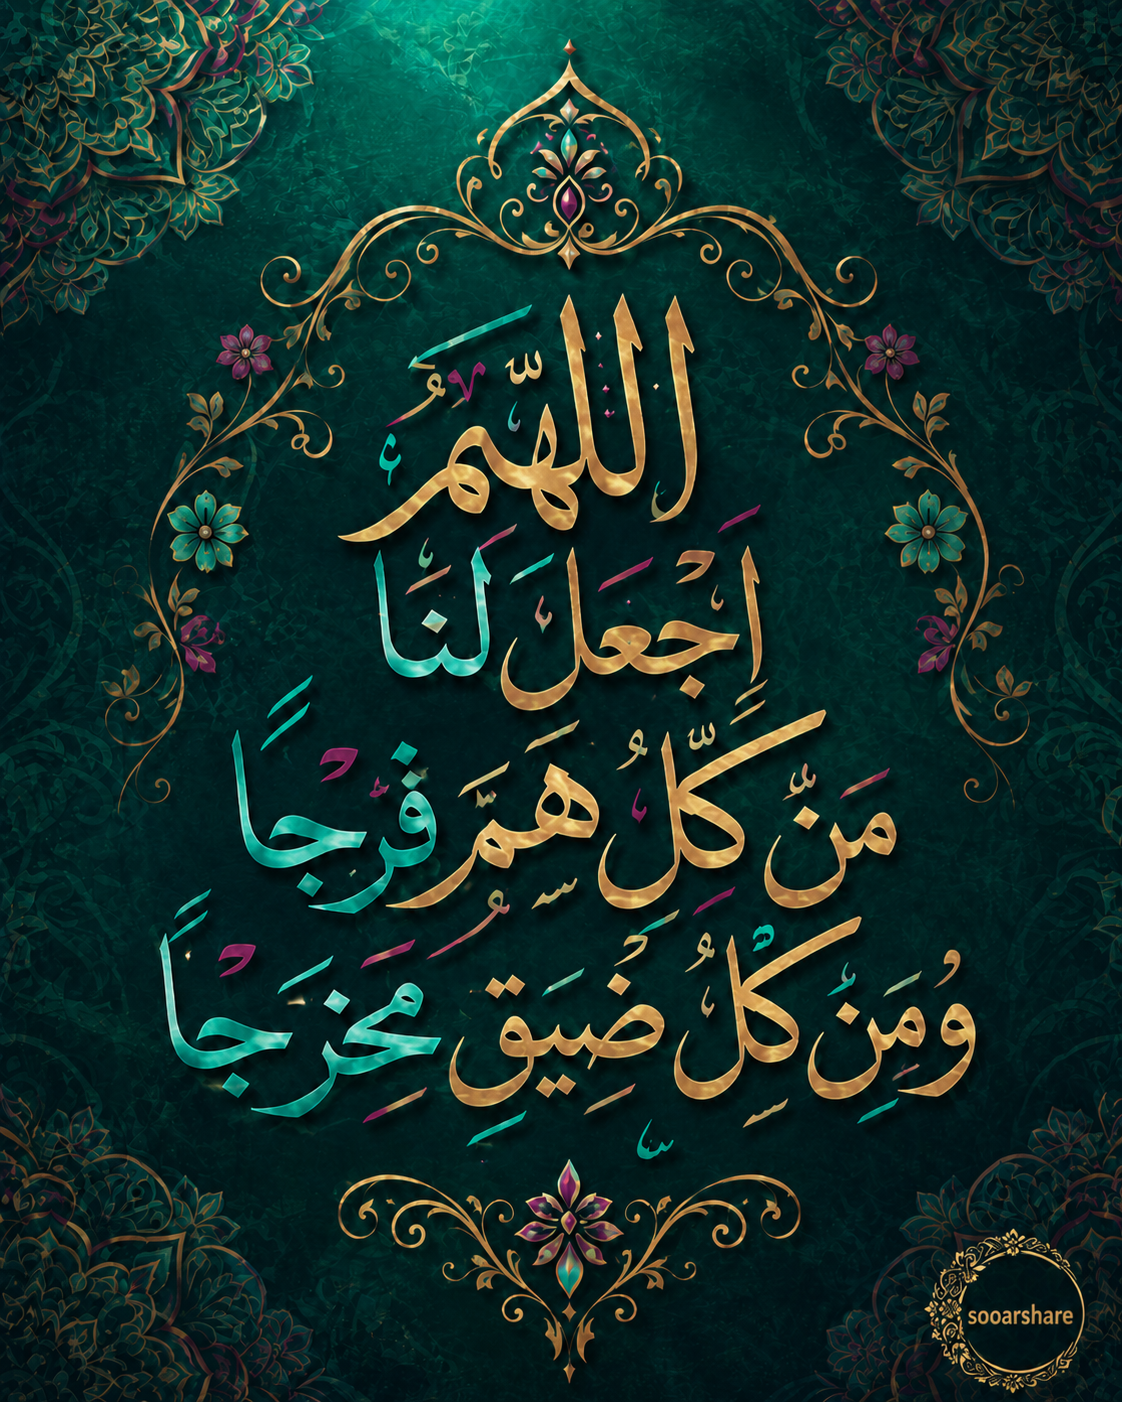 اللهم
اجعل لنا
من كل هم فرجا
ومن كل ضيق مخرجا
sooarshare